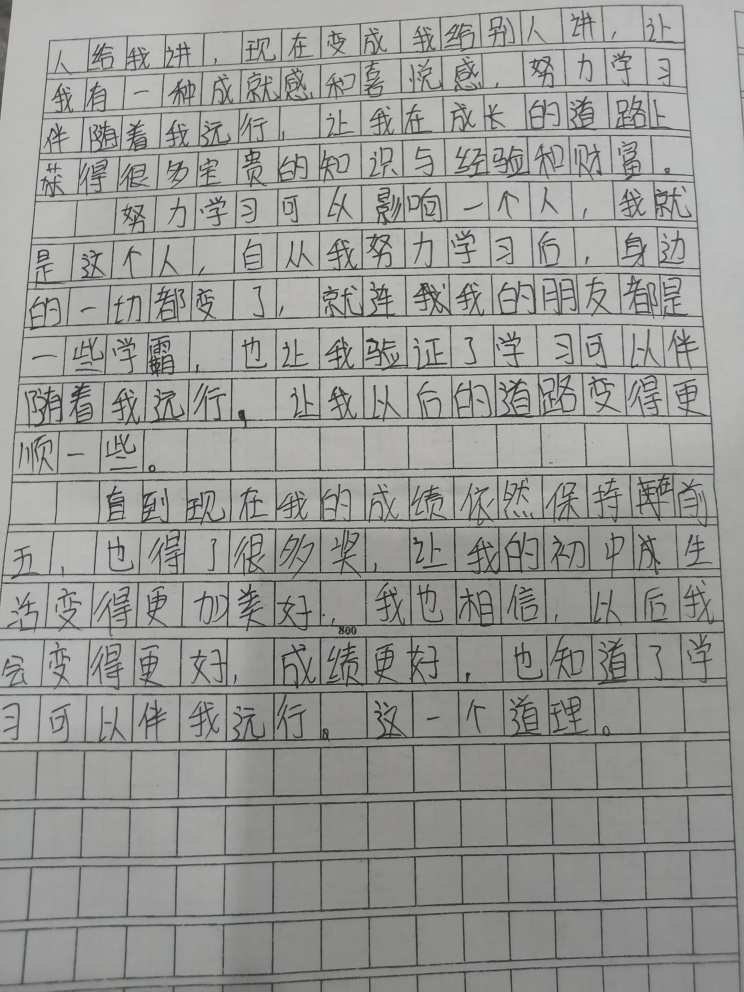 人给我讲，现在变成我给别人讲，让
我有一种成就感和喜悦感，努力学习
伴随着我远行，让我在成长的道路上
获得很多宝贵的知识与经验和财富。
努力学习可以影响一个人，我就
是这个人，自从我努力学习后，身边
的一切都变了，就连我的朋友都是
一些学霸，也让我验证了学习可以伴
随着我远行，让我以后的道路变得更
顺一些。
直到现在我的成绩依然保持前
五，也得了很多奖，让我的初中生
活变得更加美好，我也相信，以后我
800
会变得更好，成绩更好，也知道了学
习可以伴我远行。这一个道理。